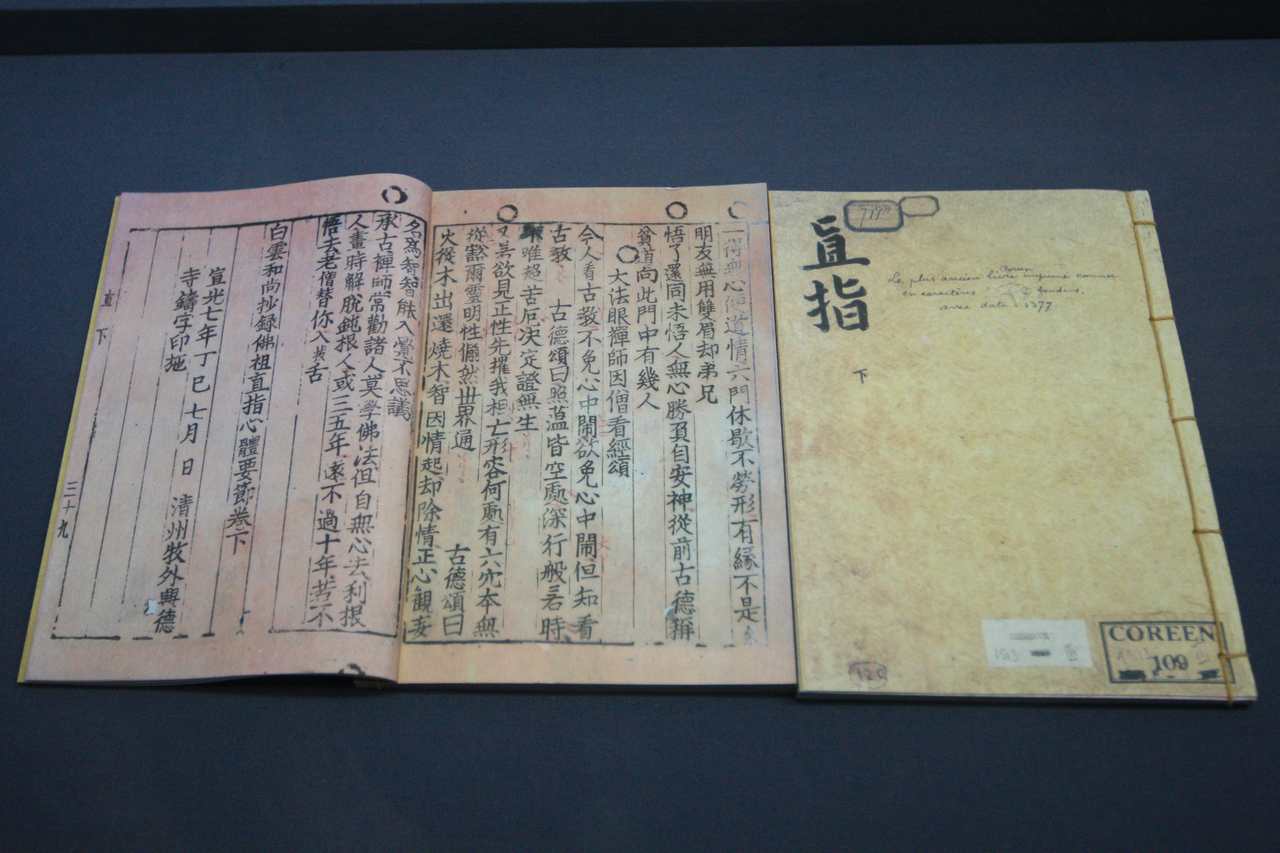 一得無心便道情六門休歇不勞形有緣不是
明友無用雙眉却弟兄
悟了還同未悟人無心勝負自安神從前古德稱
貧道向此門中有幾人
大法眼禪師因僧看經頌
今人看古教不免心中鬧欲免心中鬧但知看
古教 古德頌曰照蕰皆空處深行般若時
唯超苦厄決定證無生
又若欲見正性先摧我相亡形容何處有六宂本無
從豁爾靈明性翛然世界通 古德頌曰
火從木出還燒木智因情起却除情正心觀妄
名爲智智能入覺不思議
承古禪師常勸諸人莫學佛法但自無心去利根
人晝時解脫鈍根人或三五年遠不過十年若不
悟去老僧替你入拔舌
白雲和尚抄錄佛祖直指心體要節卷下
宣光七年丁巳七月 日 清州牧外興德
寺鑄字印施
直 下 三十九
直指
下
Le plus ancien livre coréen imprimé connu
en caractères fondus,
avec date = 1377
COREEN
109